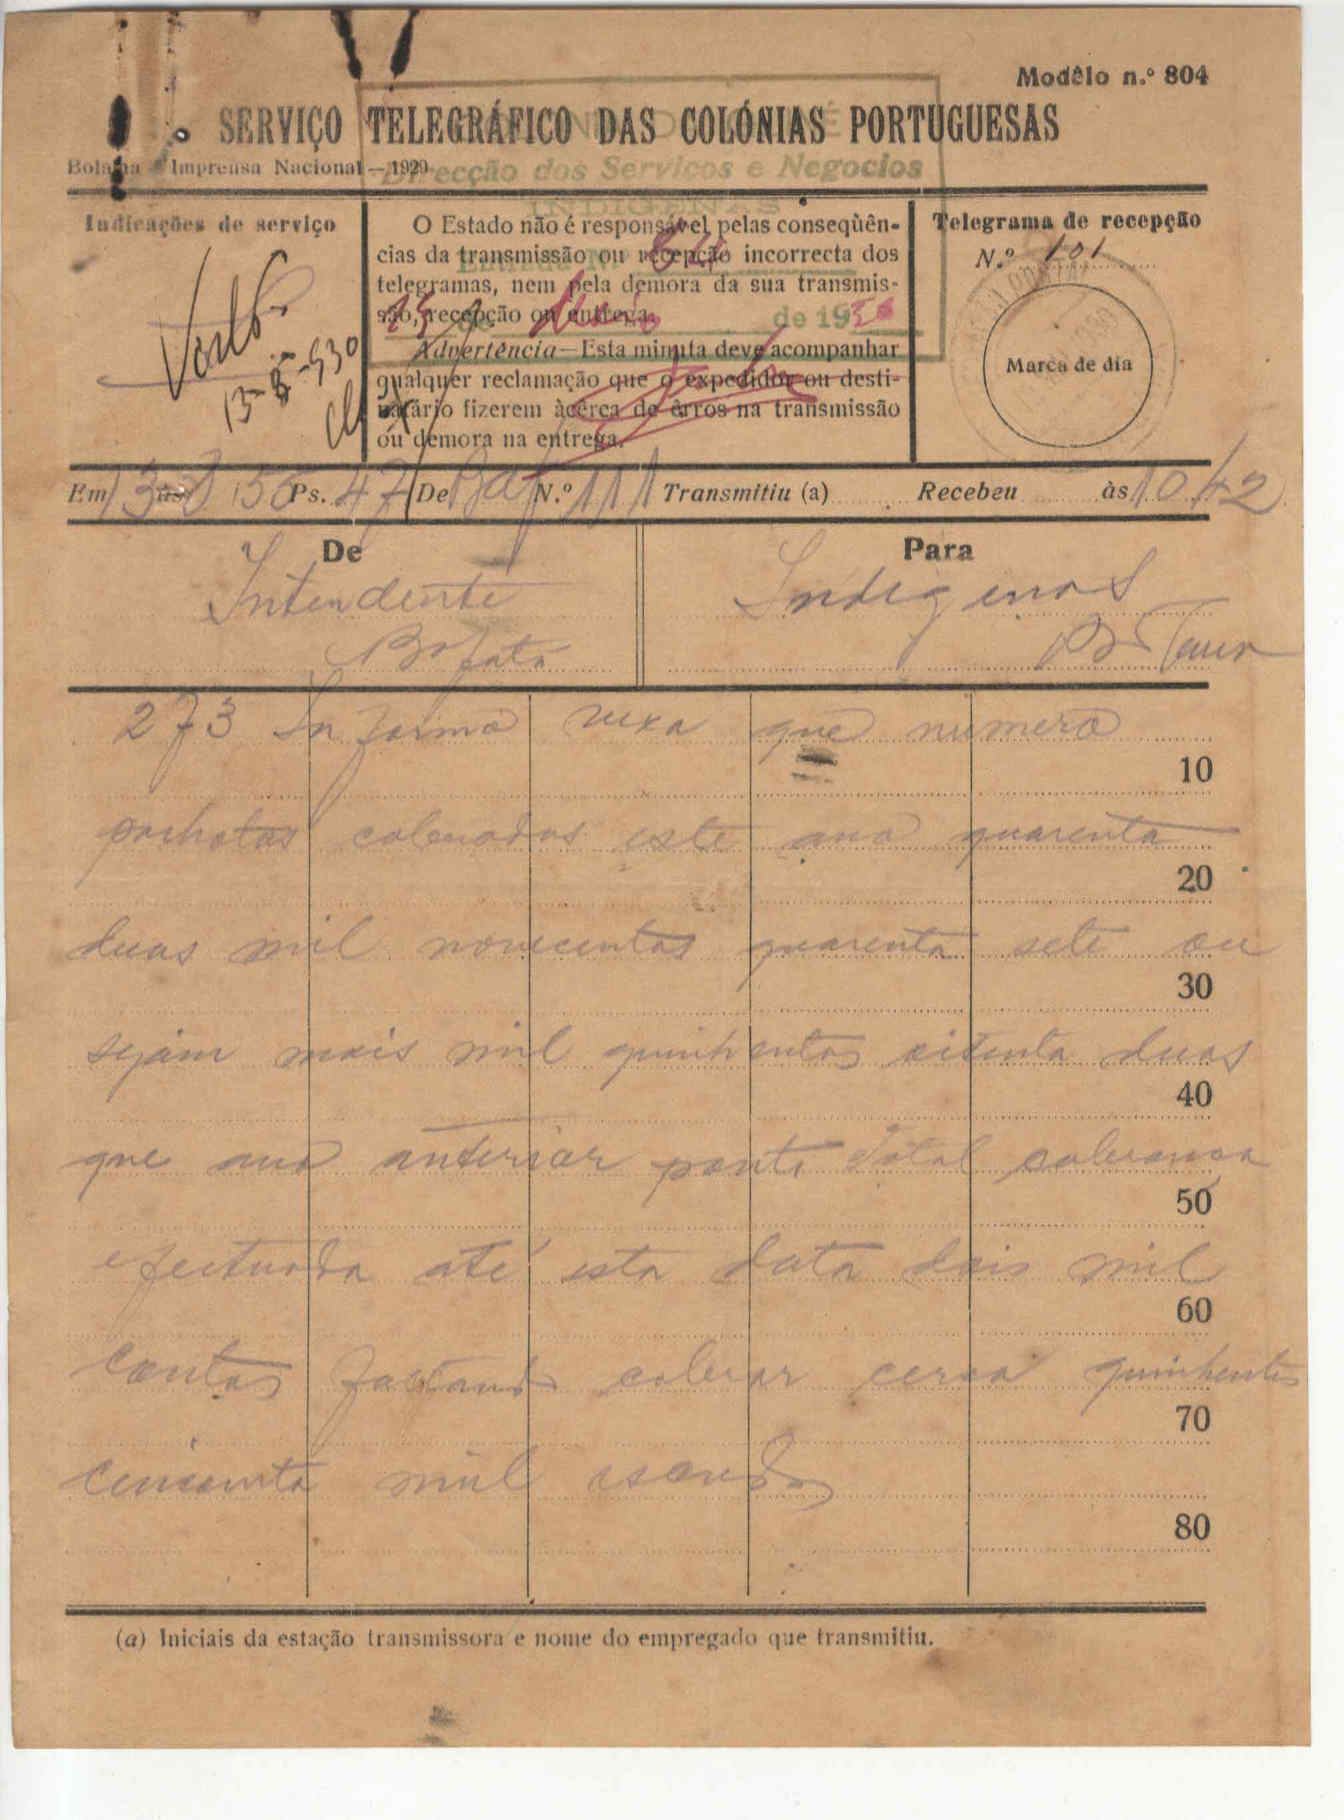 Modêlo n.º 804
SERVIÇO TELEGRÁFICO DAS COLÓNIAS PORTUGUESAS
Bolama Imprensa Nacional—1929
Direcção dos Serviços e Negocios
INDIGENAS
Entrada N.º 84
de Maio de 1930
Indicações de serviço
13-5-930
O Estado não é responsável pelas conseqùên-
cias da transmissão ou recepção incorrecta dos
telegramas, nem pela demora da sua transmis-
são, recepção ou entrega.
Advertência—Esta minuta deve acompanhar
qualquer reclamação que o expedidor ou desti-
natário fizerem àcêrca de êrros na transmissão
ou demora na entrega.
Telegrama de recepção
N.º 101
Marca de dia
Em 13 às Ps. 47 De Baf N.º 111 Transmitiu (a) Recebeu às 10,42
De
Intendente
Bafata
Para
Indigenas
273 Informo vexa que numero
palhotas cobradas este ano quarenta
duas mil novecentas quarenta sete ou
sejam mais mil quinhentas oitenta duas
que ano anterior ponto Total cobrança
efectuada até esta data dois mil
contos faltando cobrar cerca quinhentos
cincoenta mil escudos
10
20
30
40
50
60
70
80
(a) Iniciais da estação transmissora e nome do empregado que transmitiu.